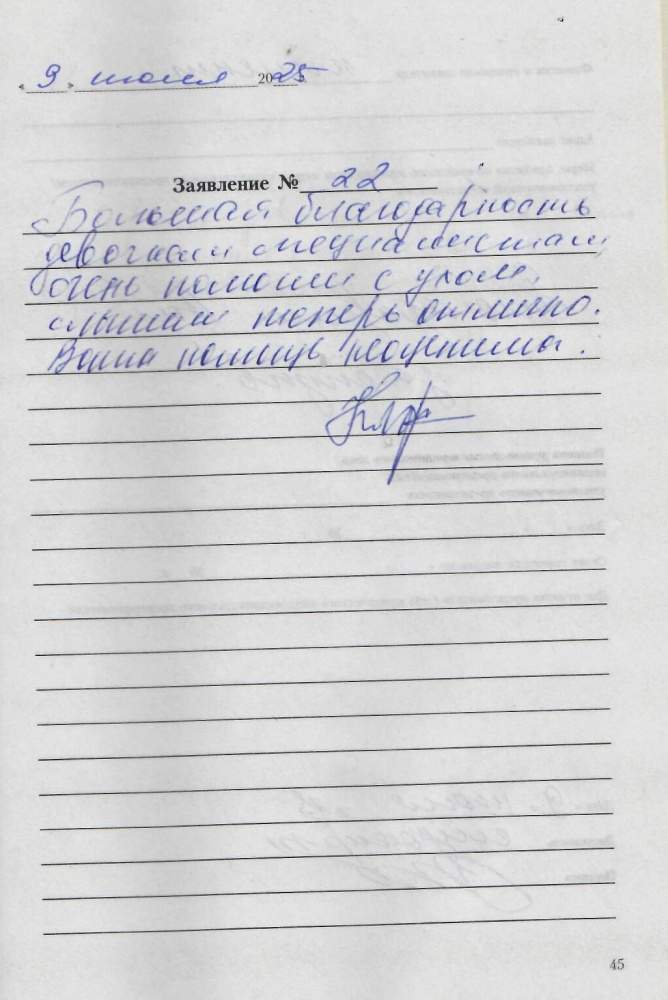 « 9 » июля 2025
Заявление № 22
Большая благодарность
девочкам специалистам
очень помогли с ухом,
слышит теперь отлично.
Ваша помощь неоценима.
45